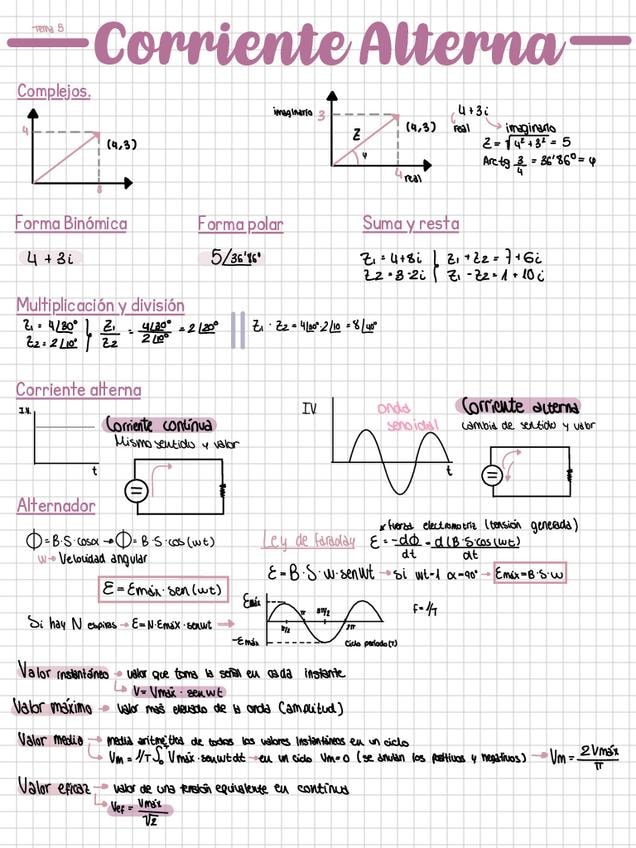 Tema 5
Corriente Alterna
Complejos.
4
(4,3)
8
imaginario
3
(4,3)
Z
φ
4
real
4+3i
real
imaginario
Z = √4²+3² = 5
Arctg 3/4 = 36'86° = φ
Forma Binómica
Forma polar
Suma y resta
4 + 3i
5/36'86°
Z₁ = 4+8i } Z₁ + Z₂ = 7+6i
Z2 = 3-2i } Z₁ - Z₂ = 1+10i
Multiplicación y división
Z₁ = 4/30° } Z₁/Z₂ = 4/30°/2/10° = 2/20°
Z₂ = 2/10°
Z₁ · Z₂ = 4/30°·2/10 = 8/40°
Corriente alterna
I.V.
t
Corriente continua
Mismo sentido y valor
I.V.
onda
senoidal
t
Corriente alterna
cambia de sentido y valor
Alternador
ϕ = B·S·cosα → ϕ = B·S·cos(wt)
w → Velocidad angular
* fuerza electromotriz (tensión generada)
Ley de faraday
ε = -dϕ/dt = d(B·S·cos(wt))/dt
ε = B·S·w·senWt → Si wt=1 α=90° → Emáx=B·S·w
ε = Emáx·sen(wt)
Si hay N espiras → ε=N·Emáx·senwt →
Emáx
-Emáx
π/2
π
3π/2
2π
Ciclo periodo(T)
F=1/T
Valor instantáneo → valor que toma la señal en cada instante
V = Vmáx · senwt
Valor máximo → valor más elevado de la onda (amplitud)
Valor medio → media aritmética de todos los valores instantáneos en un ciclo
Vm = 1/T ∫₀ Vmáx·senwtdt → en un ciclo Vm=0 (se anulan los positivos y negativos) → Vm = 2Vmáx/π
Valor eficaz → valor de una tensión equivalente en continua
Vef = Vmáx/√2